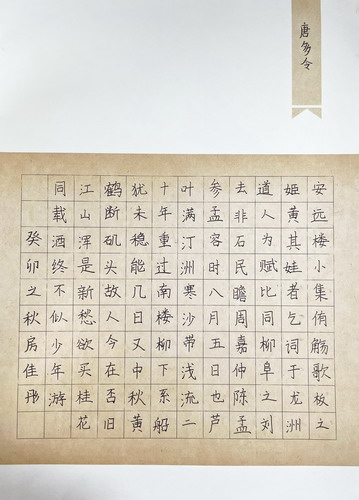 唐多令
安远楼小集侑觞歌板之
姬黄其姓者乞词于龙洲
道人为赋此同柳阜之刘
去非石民瞻周嘉仲陈孟
参孟容时八月五日也芦
叶满汀洲寒沙带浅流二
十年重过南楼柳下系船
犹未稳能几日又中秋黄
鹤断矶头故人今在否旧
江山浑是新愁欲买桂花
同载酒终不似少年游
癸卯之秋房佳彤